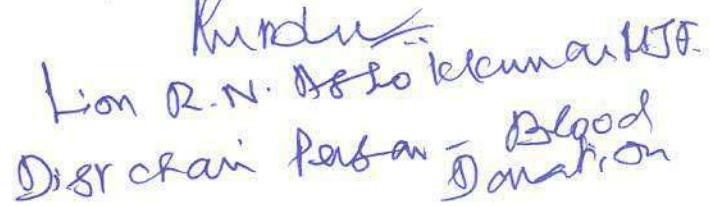 Lion R.N. Assokkumar MJF.
Dist chair Person - Blood
Donation